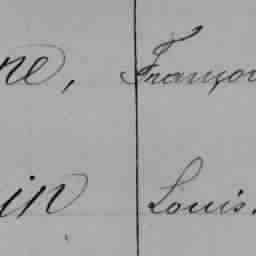 ne, Françoi
in Louis.